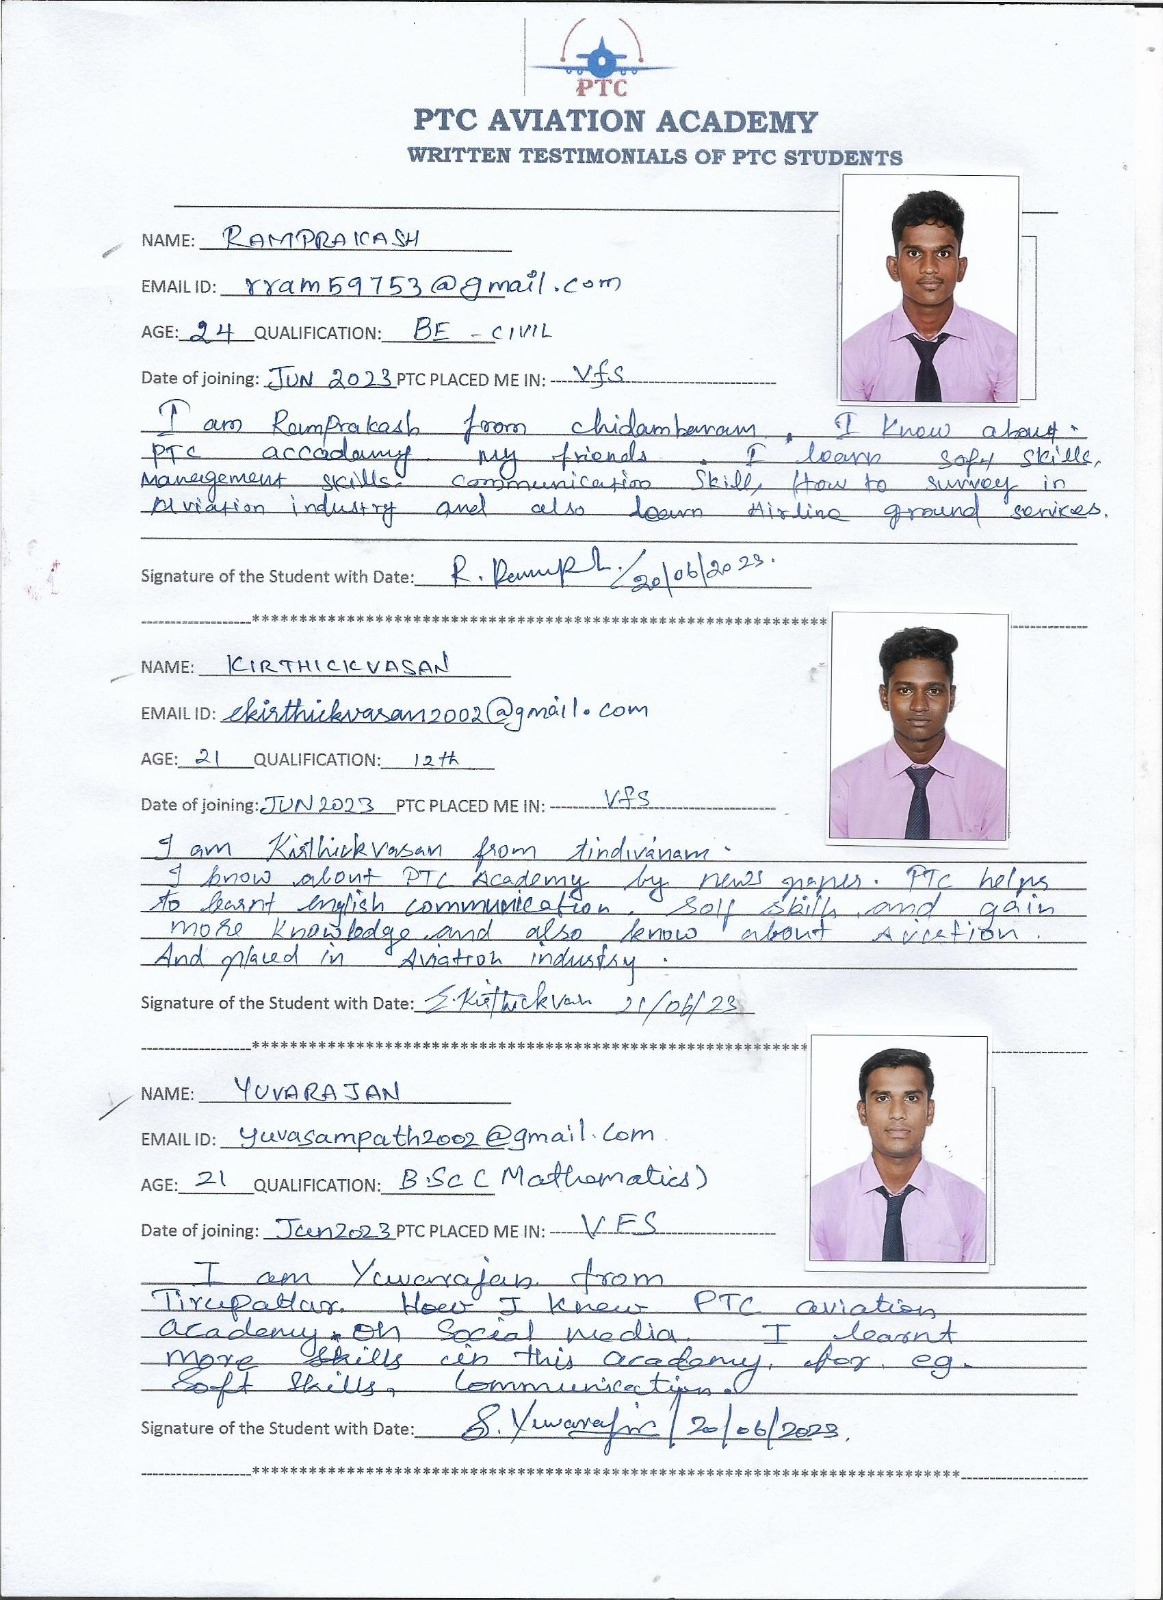 PTC
PTC AVIATION ACADEMY
WRITTEN TESTIMONIALS OF PTC STUDENTS
NAME: RAMPRAKASH
EMAIL ID: rram59753@gmail.com
AGE: 24 QUALIFICATION: BE - CIVIL
Date of joining: JUN 2023 PTC PLACED ME IN: Vfs
I am RamPrakash from chidambaram. I Know about
PTC accadamy my friends. I learn sofy skills,
Management skills communication Skill, How to survey in
Aviation industry and also learn Airline ground services.
Signature of the Student with Date: R. 20/06/2023.
NAME: KIRTHICKVASAN
EMAIL ID: ekirthickvasan2002@gmail.com
AGE: 21 QUALIFICATION: 12th
Date of joining: JUN 2023 PTC PLACED ME IN: Vfs
I am Kirthickvasan from tindivanam.
I know about PTC Academy by news paper. PTC helps
to learnt english communication. Self skills and gain
more Knowledge and also know about Aviation.
And placed in Aviation industry.
Signature of the Student with Date: E. Kirthickvan 21/06/23
NAME: YUVARAJAN
EMAIL ID: yuvasampath2002@gmail.com
AGE: 21 QUALIFICATION: B.Sc (Mathematics)
Date of joining: Jun2023 PTC PLACED ME IN: VFS
I am Yuvarajan from
Tirupattur. How I Knew PTC aviation
academy. on Social media. I learnt
more skills in this academy. for eg.
Soft Skills, Communication.
Signature of the Student with Date: S. Yuvarajan / 20/06/2023.